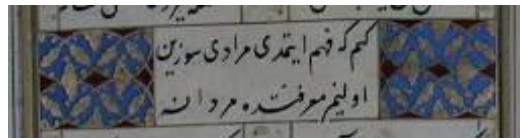 کم که فهم ایتدی مرادی سوزین
اولنم معرفتده مردانه